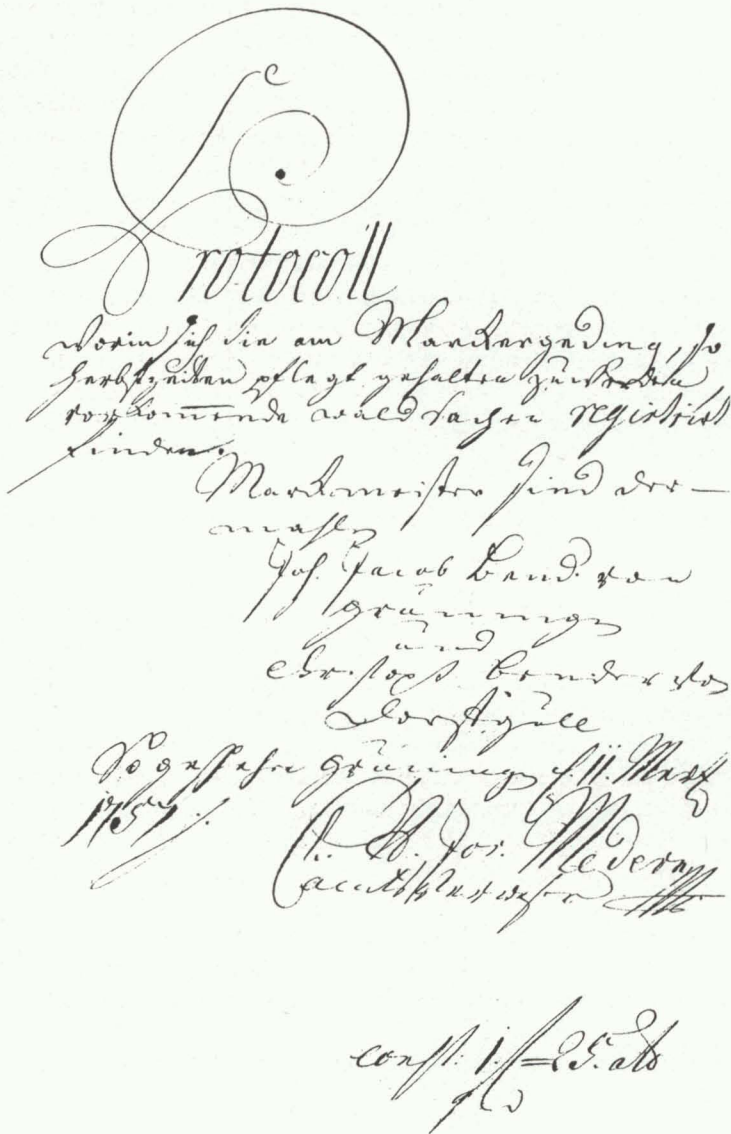 Protocoll
worin sich die am Märckergeding, so
Herbstzeiten pflegt gehalten zu werden
vorkommende waldsachen registrirt
finden.
Märckmeister sind der-
mahlen
Joh. Jacob Bend. von
Grüningen
und
Christoph Bender von
Dorffgüll
So geschehen Grüningen d. 11. Mertz
1757.
Jos. Medern
Amtsverweser
const. 1. f = 25. alb